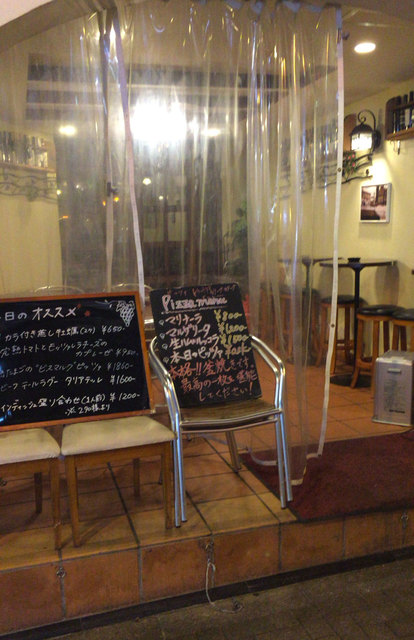 日のオススメ
カラ付き蒸し牡蠣(2ヶ) ¥650-
完熟トマトとモッツァレラチーズの
カプレーゼ ¥980-
たまごの"ビスマルク"ピッツァ ¥1860-
ビーフテールラグー タリアテッレ ¥1600-
インディッシュ盛り合わせ(1人前) ¥1200-
※2名様より
Pizza menu
マリナーラ ¥800
マルゲリータ
生ハムルッコラ
本日のピッツァ
本格釜焼き
最高の一枚を堪能
してください!